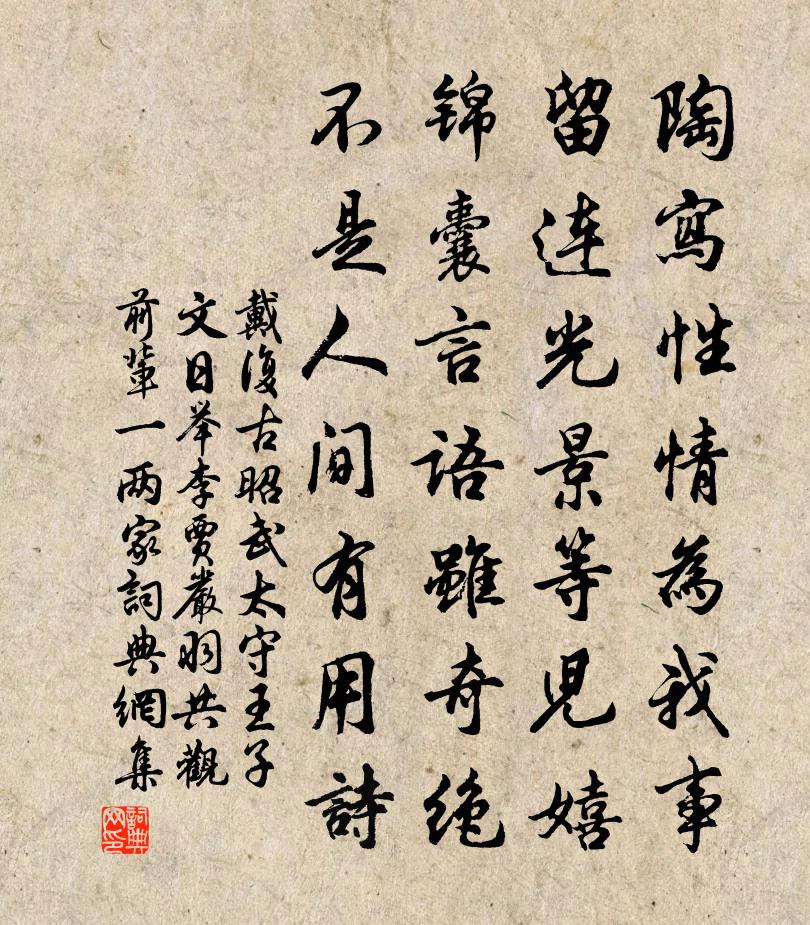 陶寫性情為我事
留连光景等児嬉
锦囊言語雖奇绝
不是人间有用詩
戴復古昭武太守王子
文日举李賈嚴羽共觀
前輩一两家詞典網集
詞典
网印